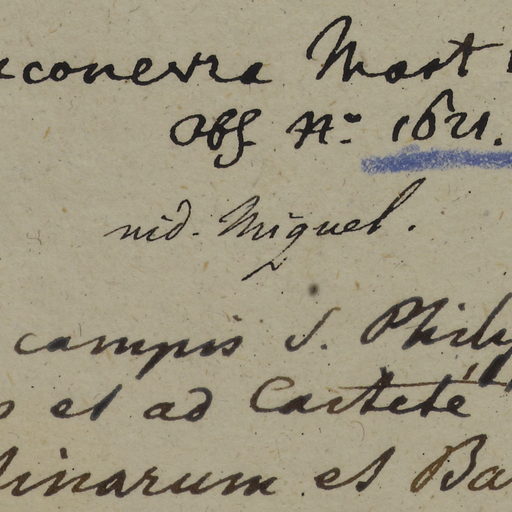 uconevra Mart
Obs. N.° 1621.
nid. Miguel.
campis S. Phili
et ad Caeteté
inarum et Ba